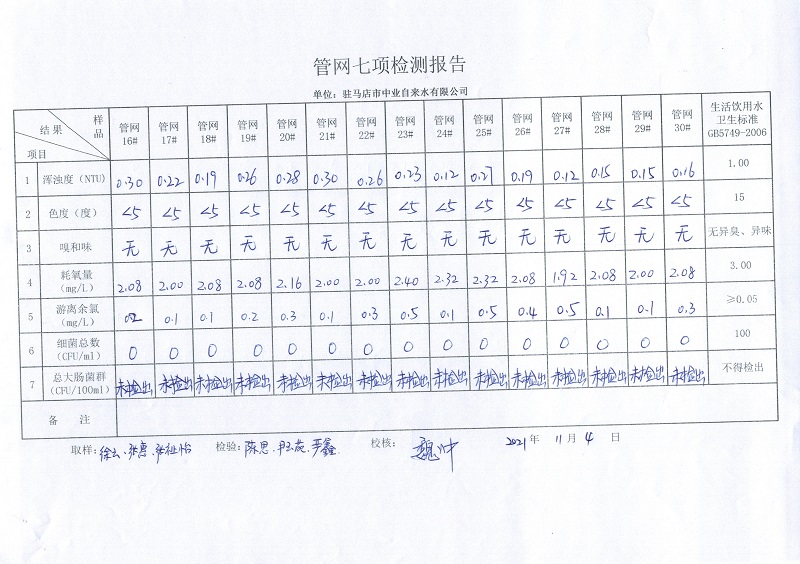 管网七项检测报告
单位：驻马店市中业自来水有限公司
结果 样品 项目 管网16# 管网17# 管网18# 管网19# 管网20# 管网21# 管网22# 管网23# 管网24# 管网25# 管网26# 管网27# 管网28# 管网29# 管网30# 生活饮用水卫生标准GB5749-2006
1 浑浊度（NTU） 0.30 0.22 0.19 0.26 0.28 0.30 0.26 0.23 0.12 0.27 0.19 0.12 0.15 0.15 0.16 1.00
2 色度（度） <5 <5 <5 <5 <5 <5 <5 <5 <5 <5 <5 <5 <5 <5 <5 15
3 嗅和味 无 无 无 无 无 无 无 无 无 无 无 无 无 无 无 无异臭、异味
4 耗氧量（mg/L） 2.08 2.00 2.08 2.08 2.16 2.00 2.00 2.40 2.32 2.32 2.08 1.92 2.08 2.00 2.08 3.00
5 游离余氯（mg/L） 0.2 0.1 0.1 0.2 0.3 0.1 0.3 0.5 0.1 0.5 0.4 0.5 0.1 0.1 0.3 ≥0.05
6 细菌总数（CFU/ml） 0 0 0 0 0 0 0 0 0 0 0 0 0 0 0 100
7 总大肠菌群（CFU/100ml） 未检出 未检出 未检出 未检出 未检出 未检出 未检出 未检出 未检出 未检出 未检出 未检出 未检出 未检出 未检出 不得检出
备 注
取样： 检验：陈思. 校核： 2021年 11月 4日